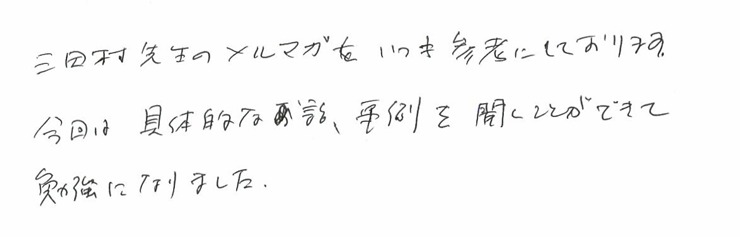 三田村先生のメルマガをいつも参考にしております。
今回は具体的なお話、事例を聞くことができて
勉強になりました.